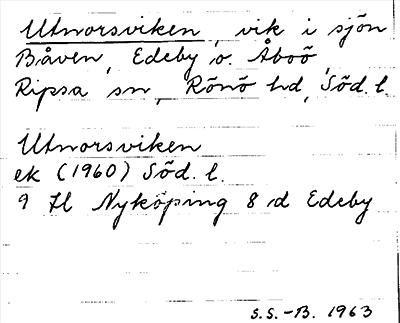 Utnorsviken, vik i sjön
Båven, Edeby o. Åboö,
Ripsa sn, Rönö hd, Söd. l.
Utnorsviken
ek (1960) Söd. l.
9 H Nyköping 8 d Edeby
S.S.-B. 1963